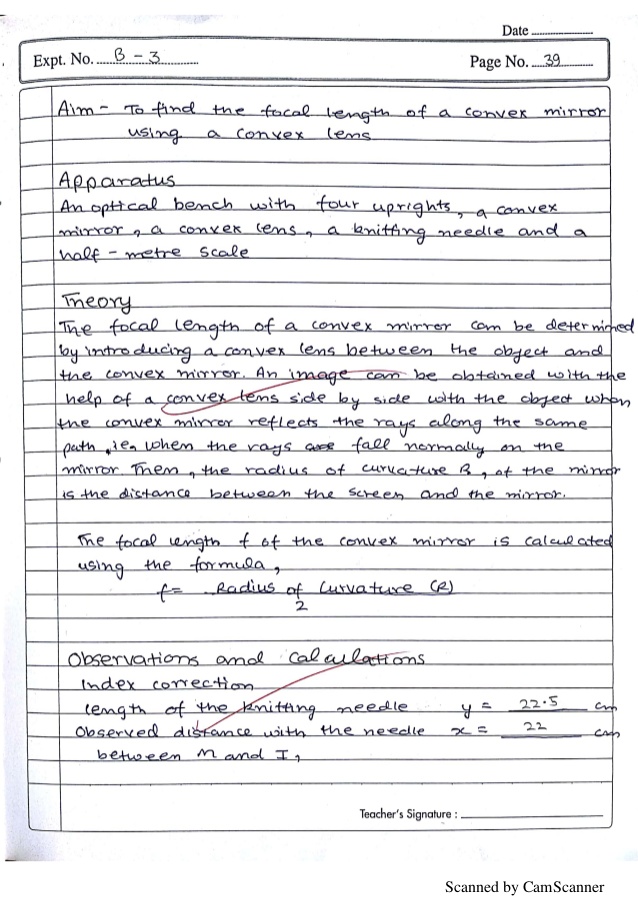 Date
Expt. No. B - 3
Page No. 39
Aim - To find the focal length of a convex mirror
using a convex lens
Apparatus
An optical bench with four uprights, a convex
mirror, a convex lens, a knitting needle and a
half - metre scale
Theory
The focal length of a convex mirror can be determined
by introducing a convex lens between the object and
the convex mirror. An image can be obtained with the
help of a convex lens side by side with the object when
the convex mirror reflects the rays along the same
path, ie, when the rays are fall normally on the
mirror. Then, the radius of curvature R, of the mirror
is the distance between the screen and the mirror.
The focal length f of the convex mirror is calculated
using the formula,
f = Radius of Curvature (R)
2
Observations and calculations
Index correction
length of the knitting needle y = 22.5 cm
Observed distance with the needle x = 22 cm
between M and I,
Teacher's Signature :
Scanned by CamScanner